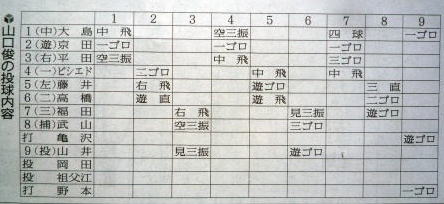 山口俊の投球内容
1 2 3 4 5 6 7 8 9
1(中)大島 中飛 空三振 四球 一ゴロ
2(遊)京田 一ゴロ 一ゴロ 一ゴロ
3(右)平田 空三振 中飛 三ゴロ
4(一)ビシエド 三ゴロ 中飛 中飛
5(左)藤井 右飛 遊ゴロ 三直
6(二)高橋 遊直 遊飛 二ゴロ
7(三)福田 右飛 見三振 遊ゴロ
8(捕)武山 空三振 三ゴロ
打 亀沢 遊ゴロ
9(投)山井 見三振 遊ゴロ
投 岡田
投 祖父江
打 野本 一ゴロ